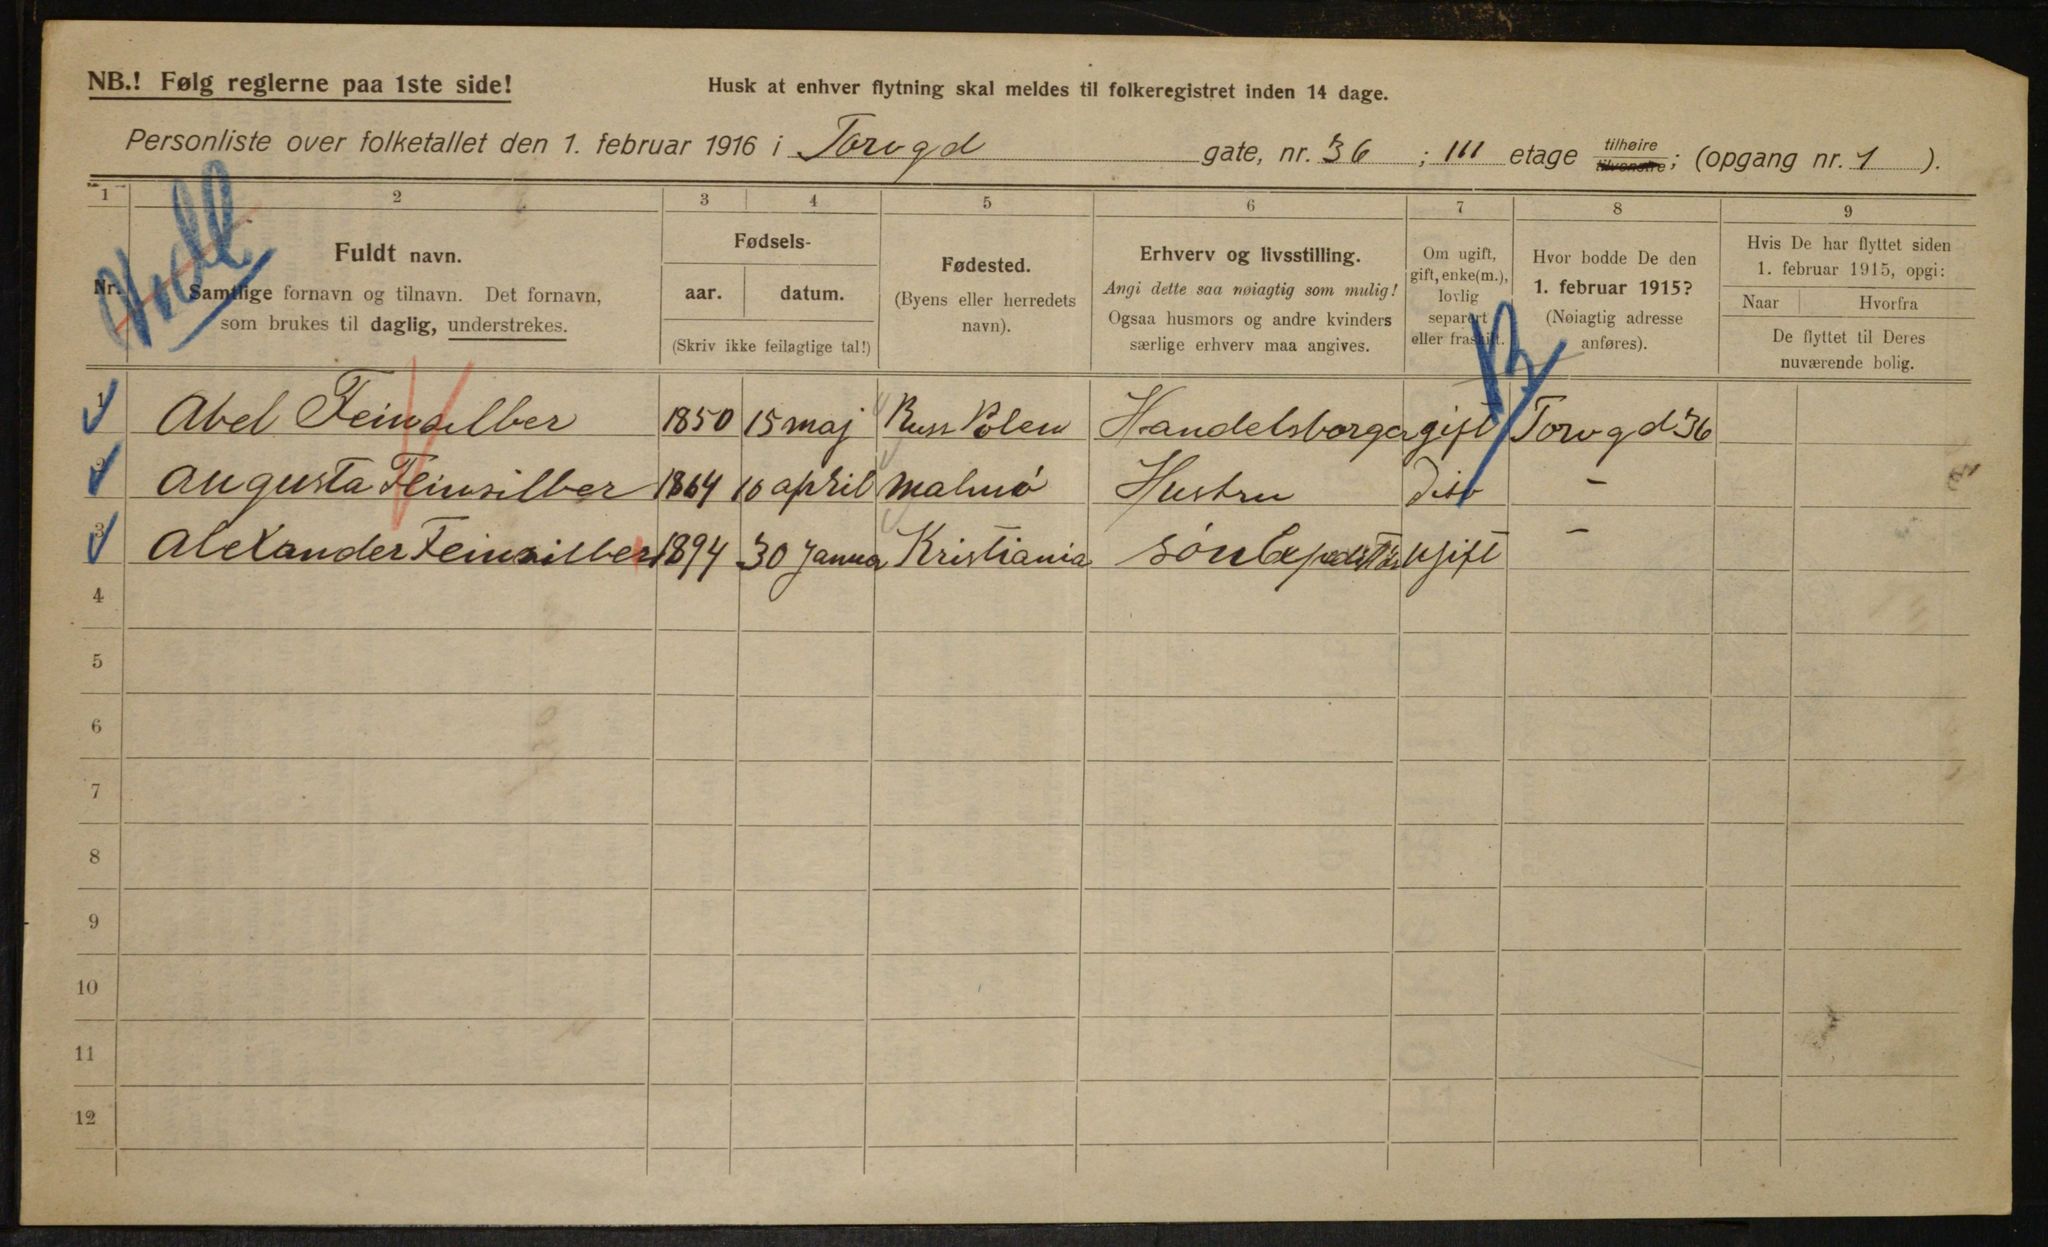 NB.! Følg reglerne paa 1ste side!
Husk at enhver flytning skal meldes til folkeregistret inden 14 dage.
Personliste over folketallet den 1. februar 1916 i Torvgd gate, nr. 36 ; III etage tilhøire tilvenstre; (opgang nr. 1 ).
1 2 3 4 5 6 7 8 9
Nr.
Fuldt navn.
Samtlige fornavn og tilnavn. Det fornavn,
som brukes til daglig, understrekes.
Fødsels-
aar. datum.
(Skriv ikke feilagtige tal!)
Fødested.
(Byens eller herredets
navn).
Erhverv og livsstilling.
Angi dette saa nøiagtig som mulig!
Ogsaa husmors og andre kvinders
særlige erhverv maa angives.
Om ugift,
gift, enke(m.),
lovlig
separert
eller fraskilt.
Hvor bodde De den
1. februar 1915?
(Nøiagtig adresse
anføres).
Hvis De har flyttet siden
1. februar 1915, opgi:
Naar Hvorfra
De flyttet til Deres
nuværende bolig.
1 Abel Feinsilber 1850 15 maj Russ Polen Handelsborger gift Torvgd 36
2 Augusta Feinsilber 1864 10 april Malmö Hustru Dito -
3 Alexander Feinsilber 1894 30 Januar Kristiania Sön Expeditör Ugift -
4
5
6
7
8
9
10
11
12